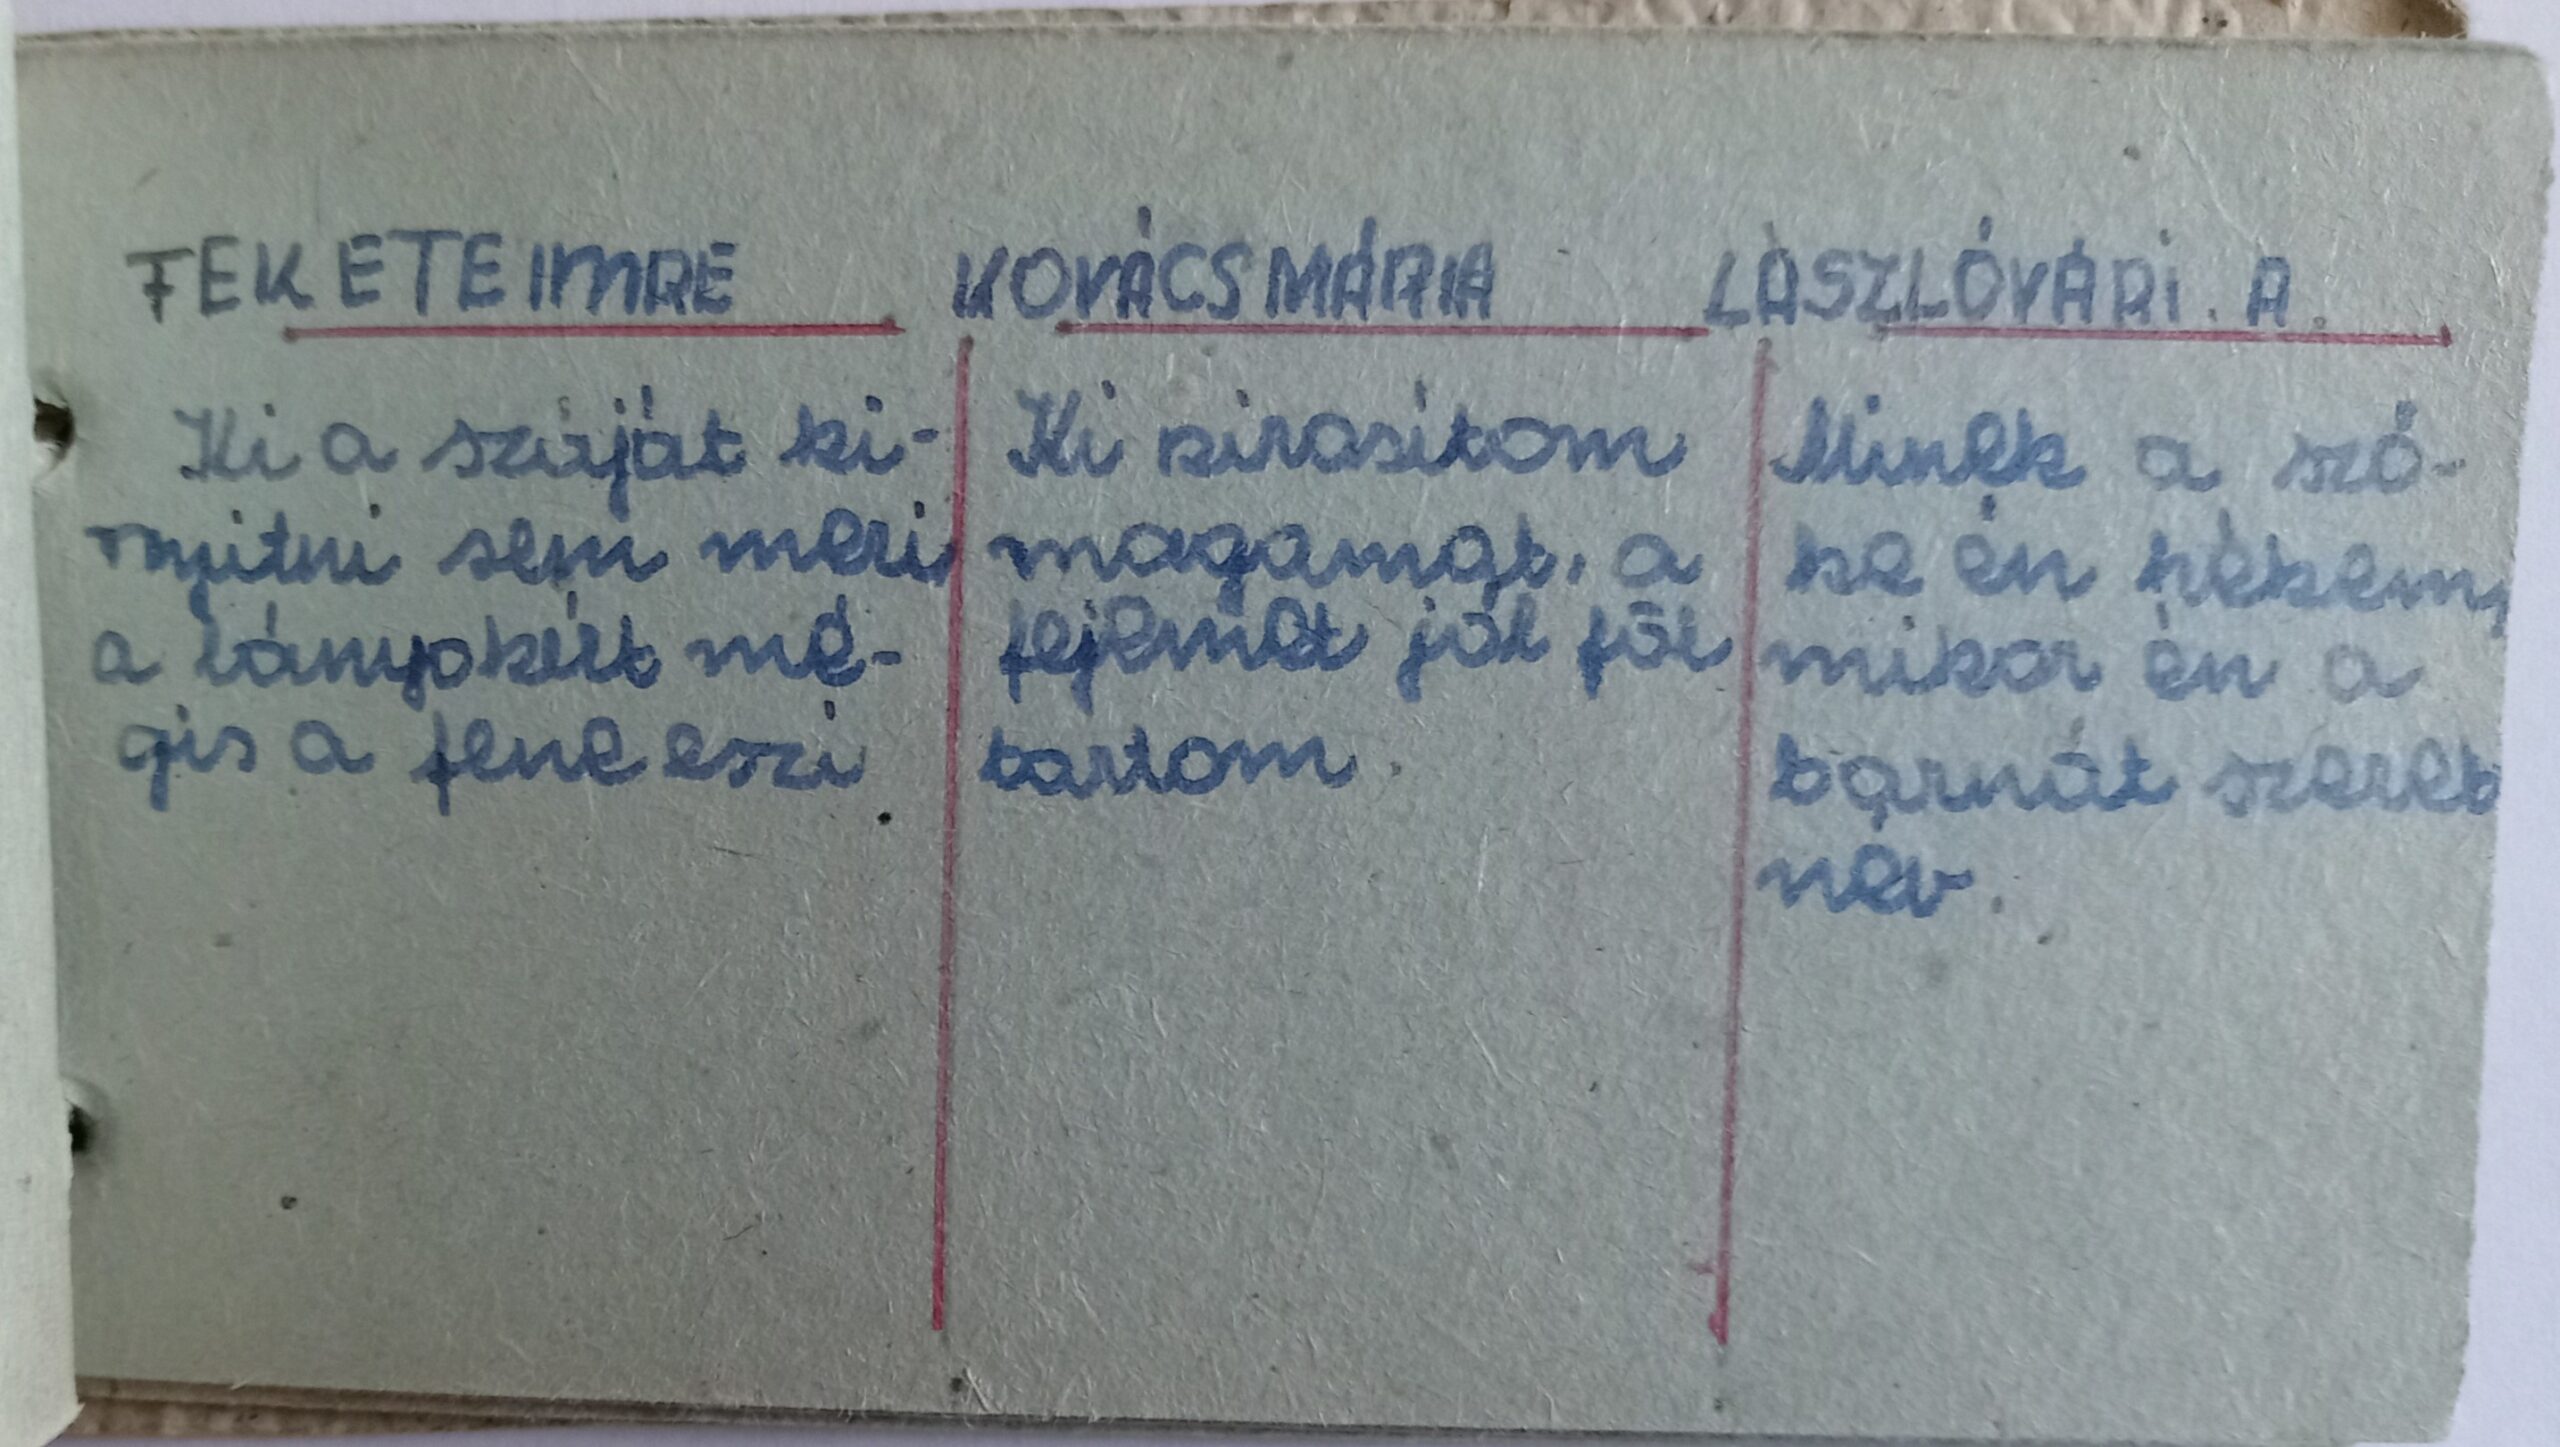 FEKETE IMRE
Ki a száját ki-
nyitni sem meri,
a lányokért mé-
gis a fene eszi
KOVÁCS MÁRIA
Ki kirasitom
magamat, a
fejemet jól föl
tartom.
LÁSZLÓVÁRI. A.
Minek a sző-
ke én nékem,
mikor én a
barnát szeret
nev.